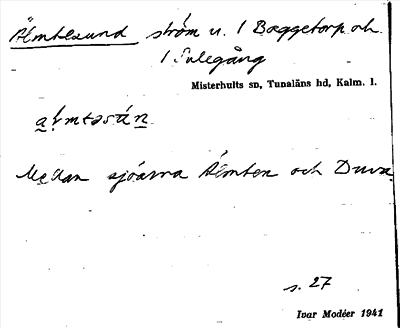 Älmtesund ström u. 1 Baggetorp och
1 Sulegång
Misterhults sn, Tunaläns hd, Kalm. l.
Mellan sjöarna Älmten och Duva.
s. 27
Ivar Modéer 1941